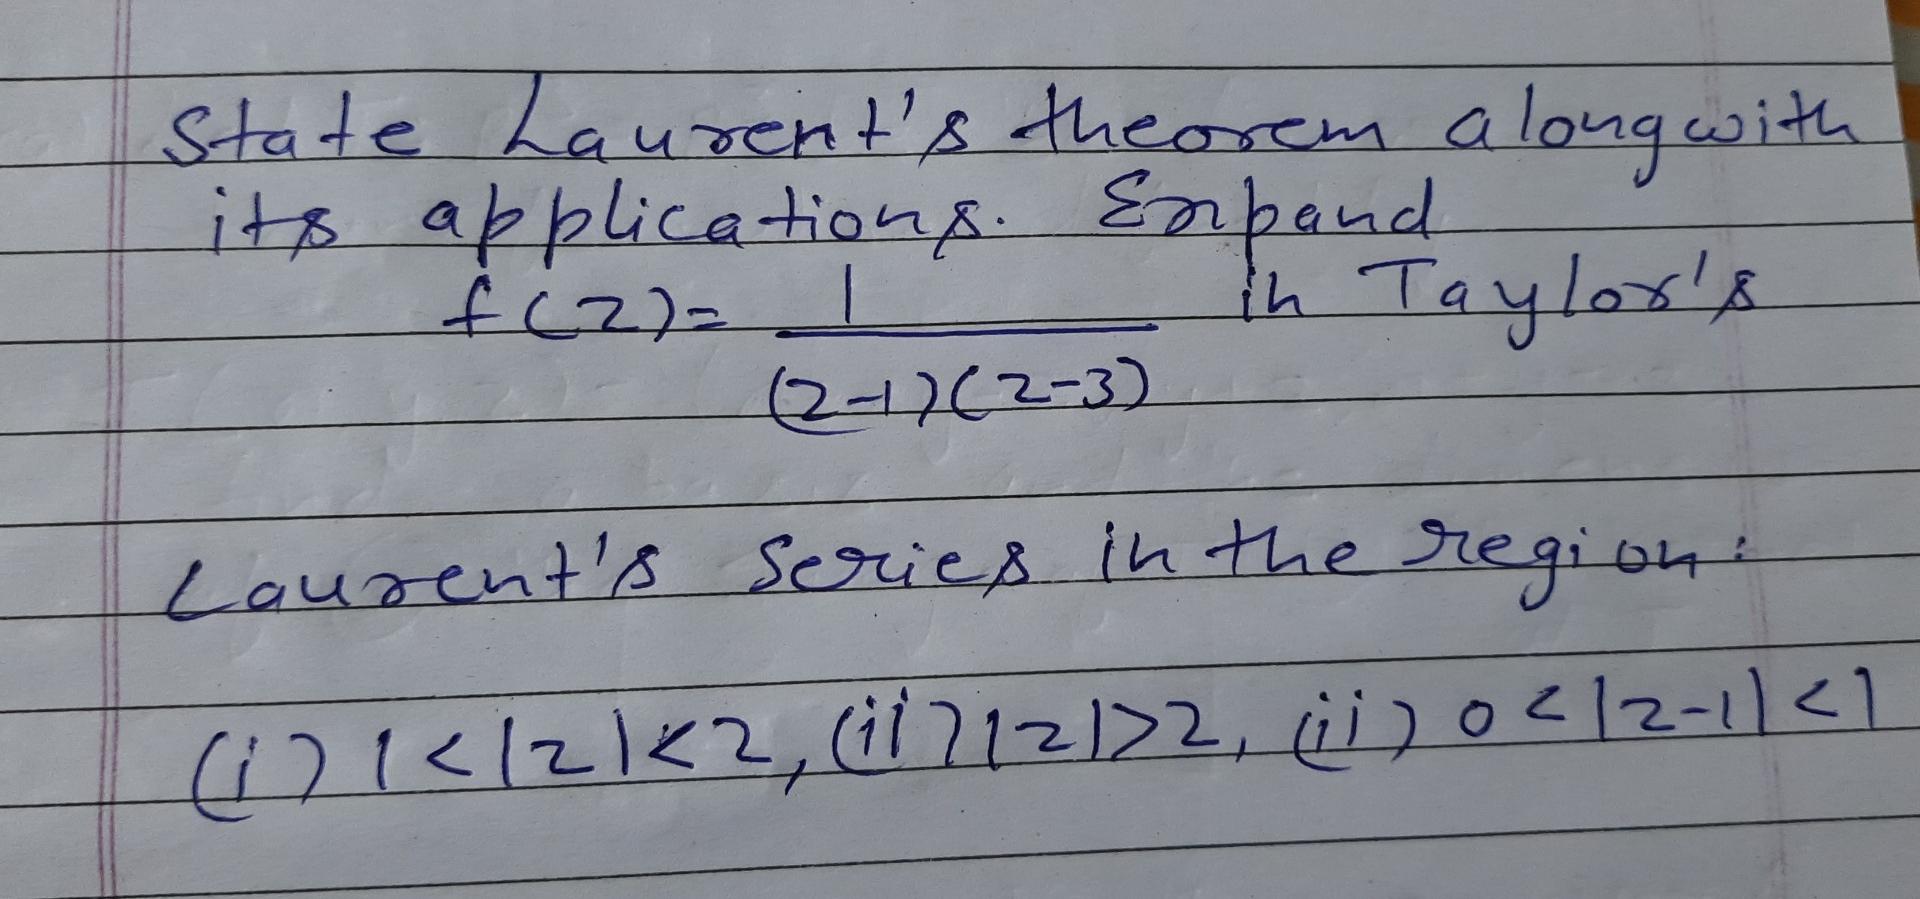 State Laurent's theorem alongwith
its applications. Expand
f(z)= 1 in Taylor's
(z-1)(z-3)
Laurent's series in the region:
(i) 1<|z|<2, (ii) |z|>2, (ii) 0<|z-1|<1